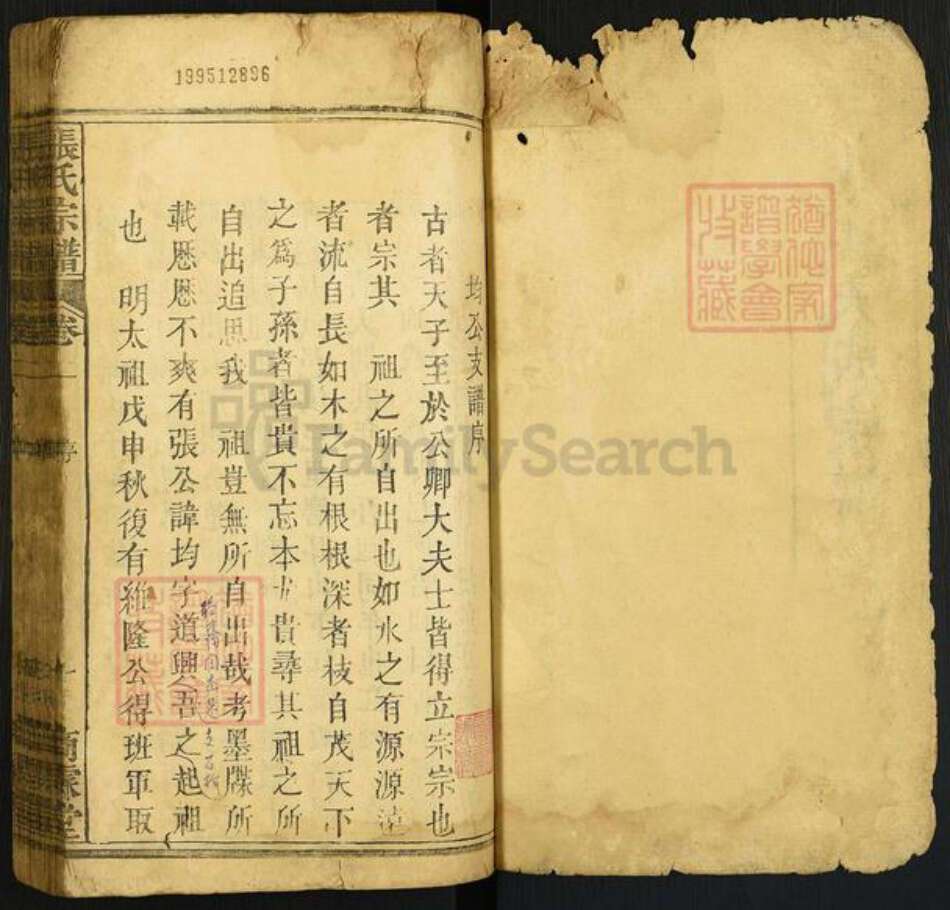 199512896
均公支譜序
古者天子至於公卿大夫士皆得立宗宗也
者宗其 祖之所自出也如水之有源源遠
者流自長如木之有根根深者枝自茂天下
之爲子孫者皆貴不忘本尤貴尋其祖之所
自出追思我 祖豈無所自出哉考墨牒所
載歷歷不爽有張公諱均字道興吾之起祖
也 明太祖戊申秋復有維隆公得班軍取
張氏宗譜
卷一
序
FamilySearch
收藏
譜學會